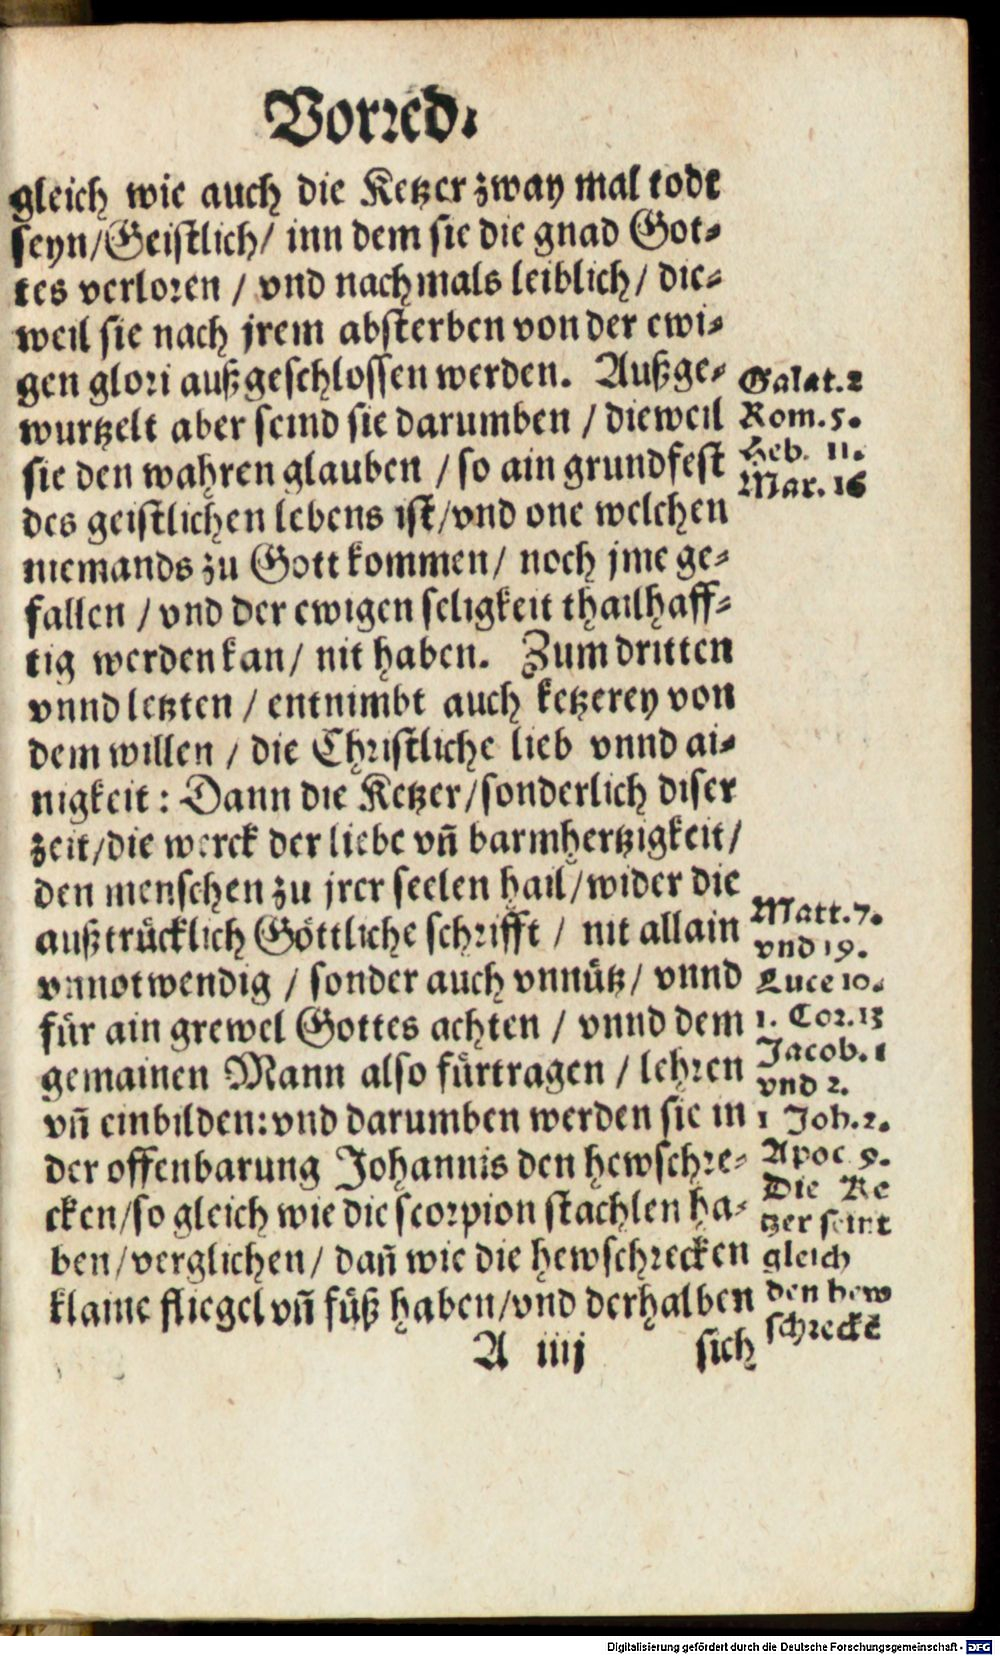 Vorred.
gleich wie auch die Ketzer zway mal todt
seyn/Geistlich/ inn dem sie die gnad Got-
tes verloren / vnd nachmals leiblich/ die-
weil sie nach jrem absterben von der ewi-
gen glori außgeschlossen werden. Außge-
wurtzelt aber seind sie darumben / dieweil
sie den wahren glauben / so ain grundfest
des geistlichen lebens ist/vnd one welchen
niemands zu Gott kommen/ noch jme ge-
fallen / vnd der ewigen seligkeit thailhaff-
tig werden kan/ nit haben. Zum dritten
vnnd letzten / entnimbt auch ketzerey von
dem willen / die Christliche lieb vnnd ai-
nigkeit: Dann die Ketzer/sonderlich diser
zeit/die werck der liebe vñ barmhertzigkeit/
den menschen zu jrer seelen hail/wider die
außtrücklich Göttliche schrifft / nit allain
vnnotwendig / sonder auch vnnütz/ vnnd
für ain grewel Gottes achten / vnnd dem
gemainen Mann also fürtragen / lehren
vñ einbilden: vnd darumben werden sie in
der offenbarung Johannis den hewschre-
cken/so gleich wie die scorpion stachlen ha-
ben/verglichen/ dañ wie die hewschrecken
klaine fliegel vñ füß haben/vnd derhalben
A iiij sich
Galat.2
Rom.5.
Heb. 11.
Mar. 16
Matt.7.
vnd 19.
Luce 10.
1. Cor.13
Jacob.1
vnd 2.
1 Joh.2.
Apoc 9.
Die Ke
tzer seint
gleich
den hew
schreckē
Digitalisierung gefördert durch die Deutsche Forschungsgemeinschaft - DFG